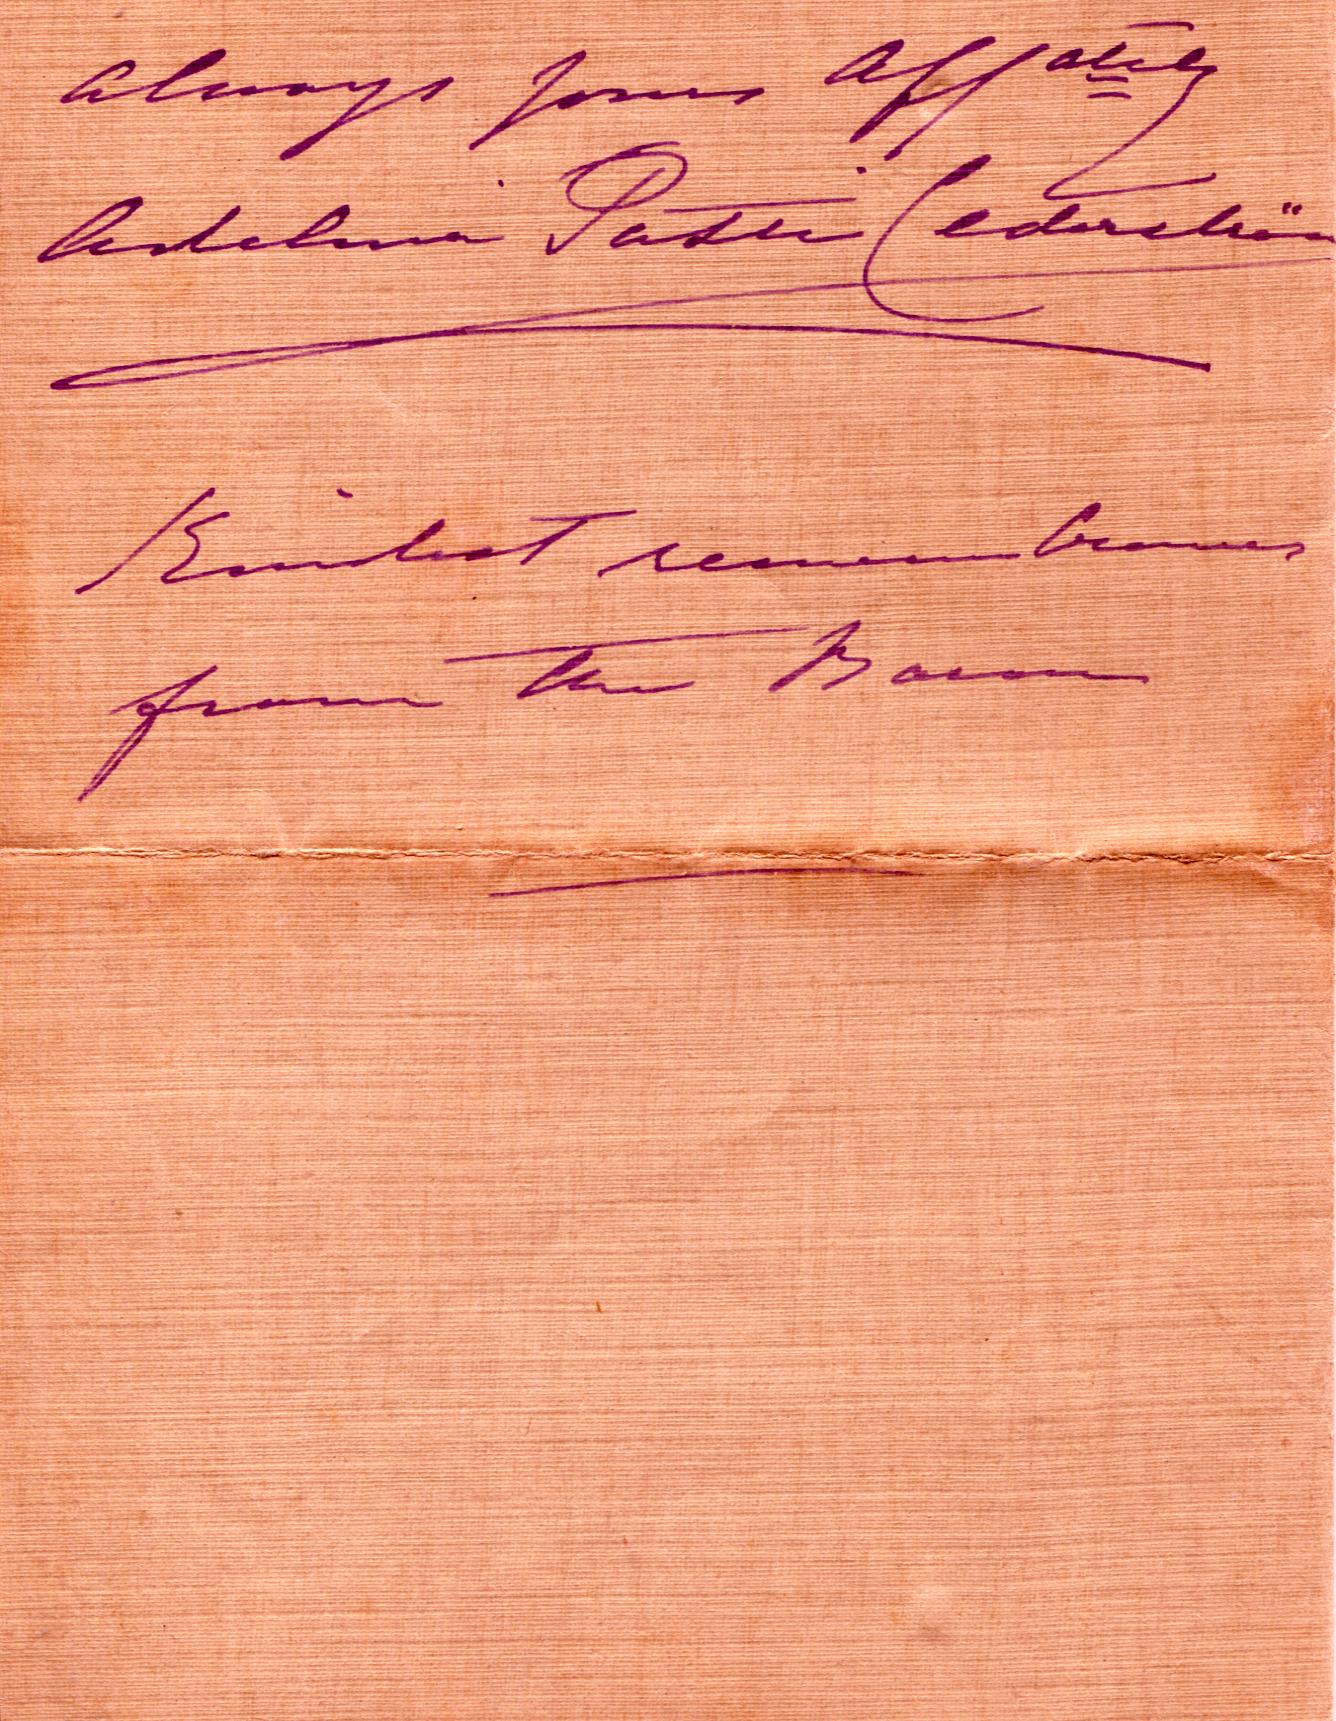 always yours affately
Adelina Patti Cederström
Kindest remembrances
from the Baron